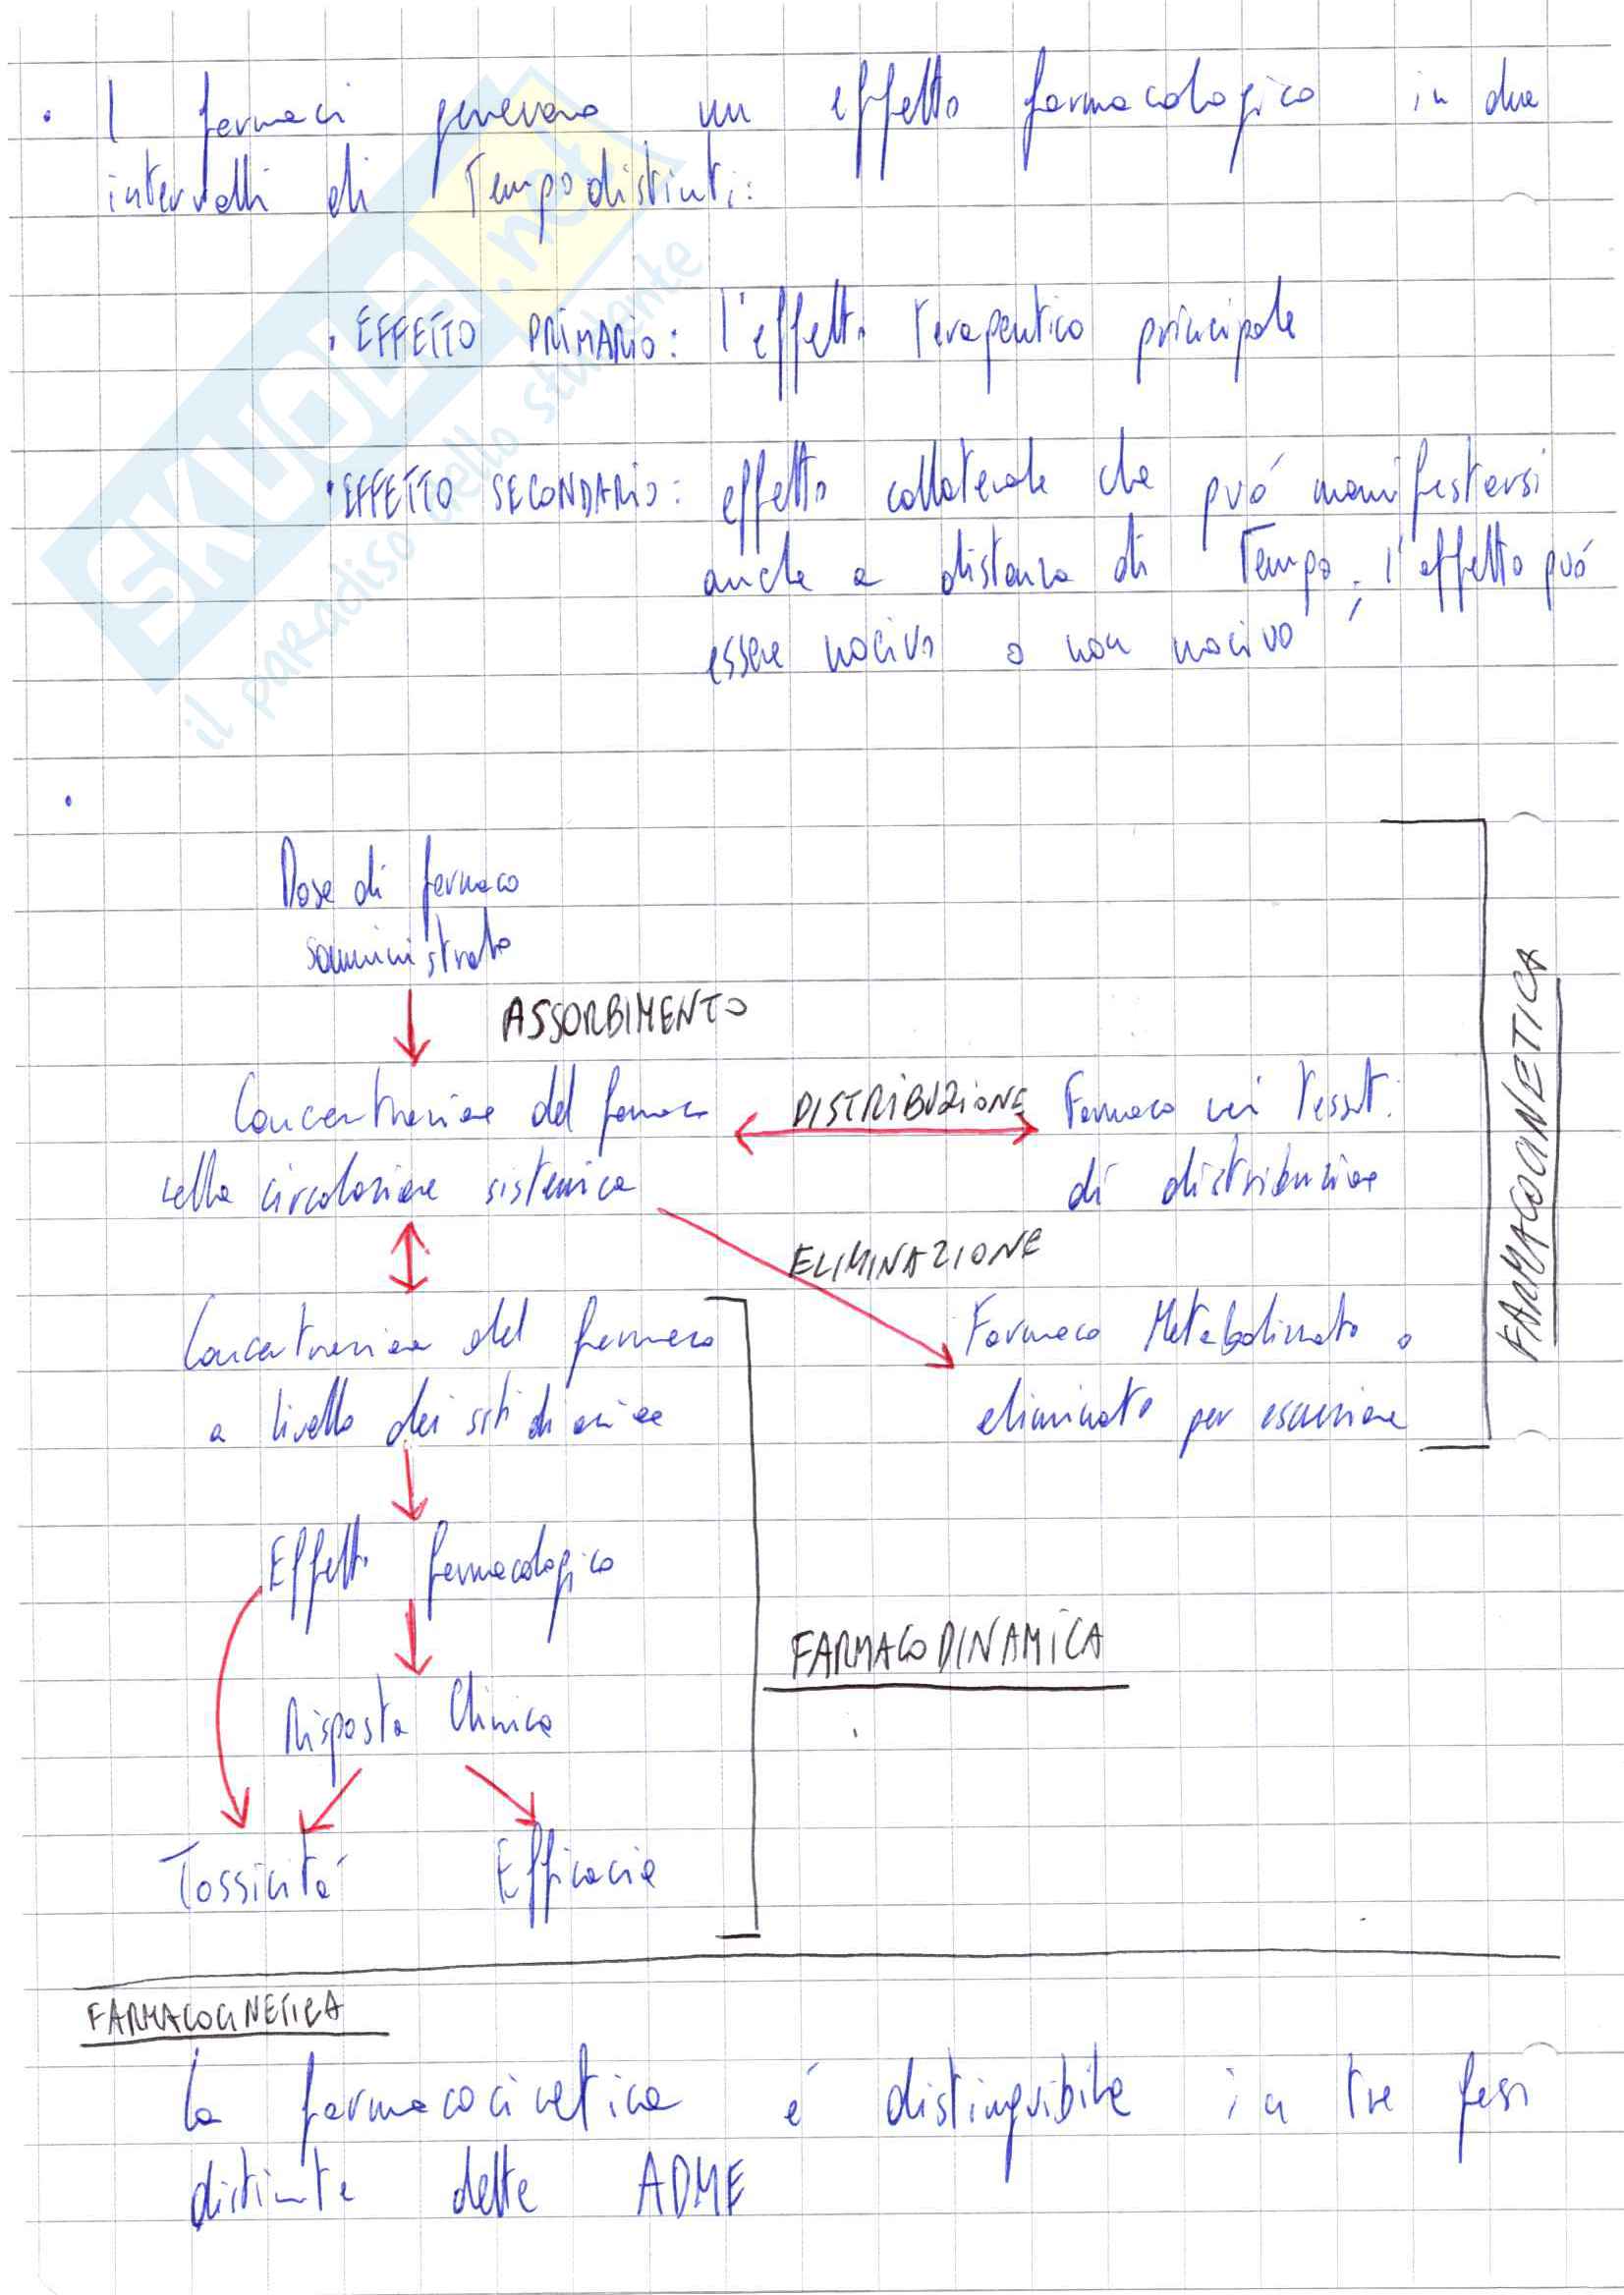 • I farmaci generano un effetto farmacologico in due
intervalli di Tempo distinti:
• EFFETTO PRIMARIO: l'effetto Terapeutico principale
• EFFETTO SECONDARIO: effetto collaterale che può manifestarsi
anche a distanza di Tempo; l'effetto può
essere nocivo o non nocivo
SKUOLA.net
il paradiso dello studente
•
Dose di farmaco
somministrato
ASSORBIMENTO
Concentrazione del farmaco
nella circolazione sistemica
DISTRIBUZIONE
Farmaco nei Tessuti
di distribuzione
ELIMINAZIONE
Farmaco Metabolizzato o
eliminato per escrezione
FARMACOCINETICA
Concentrazione del farmaco
a livello dei siti di azione
Effetto farmacologico
Risposta Clinica
Tossicità Efficacia
FARMACODINAMICA
FARMACOCINETICA
la farmacocinetica é distinguibile in tre fasi
distinte dette ADME